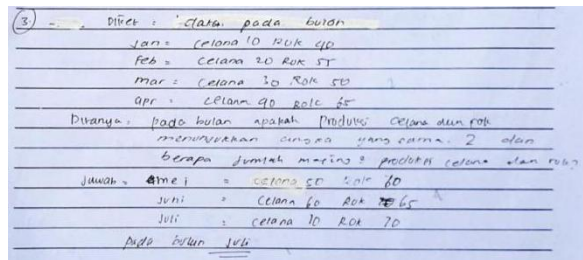 3. Diket : data pada bulan
Jan = celana 10 Rok 40
Feb = celana 20 Rok 55
mar = celana 30 Rok 50
apr = celana 40 Rok 65
Ditanya : pada bulan apakah Produksi celana dan rok
menunjukkan angka yang sama ? dan
berapa jumlah masing2 produksi celana dan rok?
Jawab = mei = celana 50 Rok 60
Juni = celana 60 Rok 65
Juli = celana 70 Rok 70
pada bulan Juli